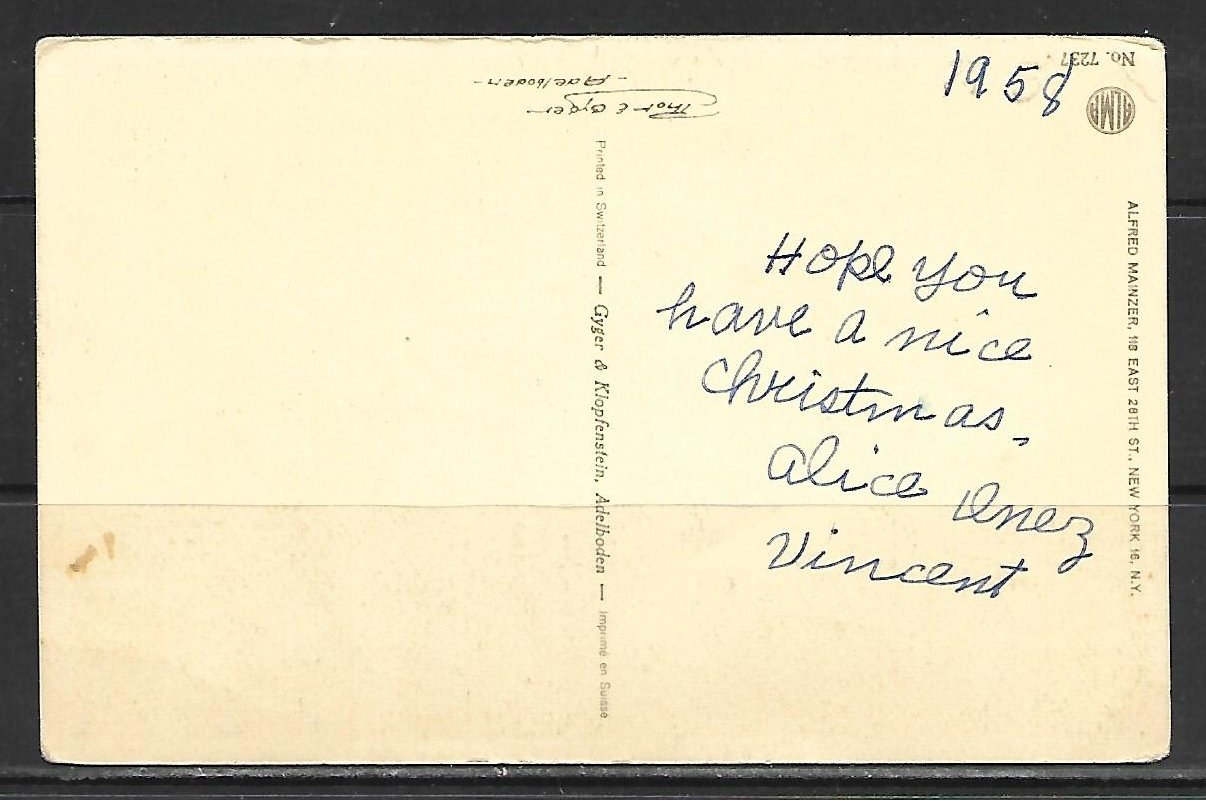 1958
Hope you
have a nice
Christmas,
Alice Inez
Vincent
No. 7237
ALMA
ALFRED MAINZER, 118 EAST 28TH ST., NEW YORK 16, N.Y.
Printed in Switzerland — Gyger & Klopfenstein, Adelboden — Imprimé en Suisse
Gyger
- Adelboden -